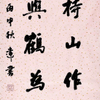 持山作
與鶴為
丙申秋 達書